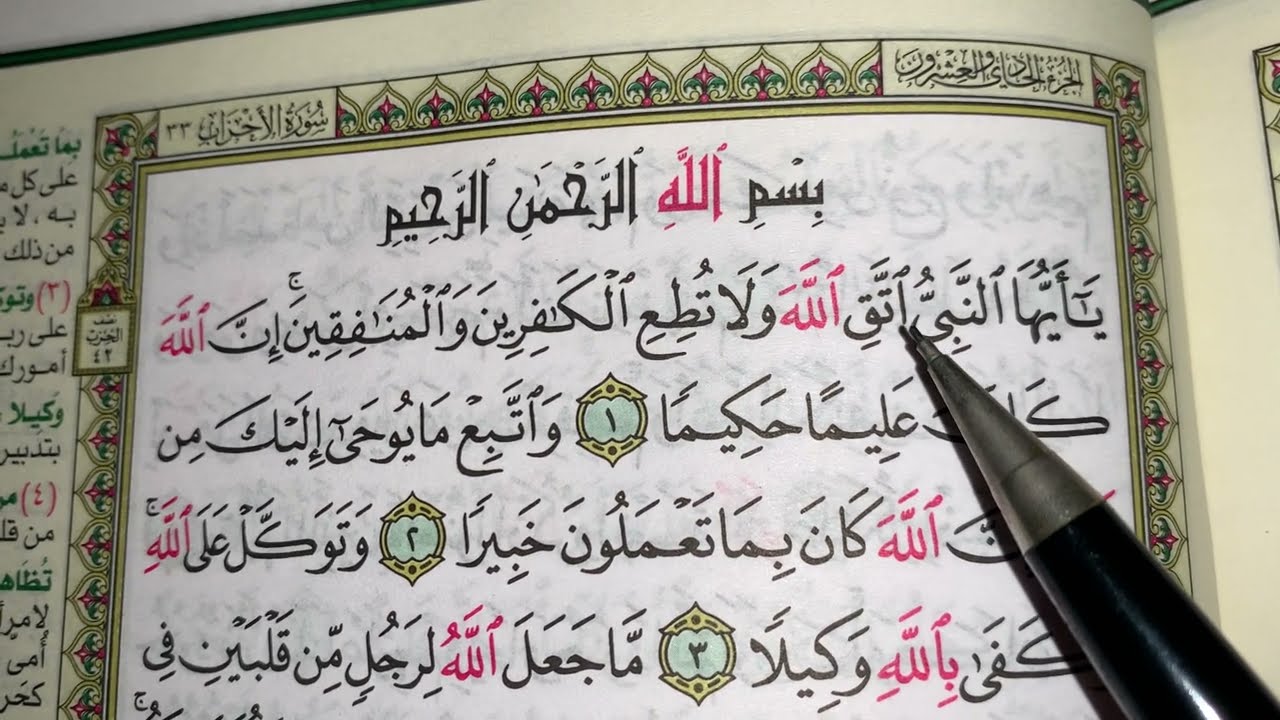 الجزء الحادي والعشرون
سُورَةُ الأَحْزَابِ ٣٣
بِسْمِ ٱللَّهِ ٱلرَّحْمَٰنِ ٱلرَّحِيمِ
يَٰٓأَيُّهَا ٱلنَّبِيُّ ٱتَّقِ ٱللَّهَ وَلَا تُطِعِ ٱلْكَٰفِرِينَ وَٱلْمُنَٰفِقِينَ ۚ إِنَّ ٱللَّهَ
كَانَ عَلِيمًا حَكِيمًا ١ وَٱتَّبِعْ مَا يُوحَىٰٓ إِلَيْكَ مِن
ٱللَّهَ كَانَ بِمَا تَعْمَلُونَ خَبِيرًا ٢ وَتَوَكَّلْ عَلَى ٱللَّهِ ۚ
كَفَىٰ بِٱللَّهِ وَكِيلًا ٣ مَّا جَعَلَ ٱللَّهُ لِرَجُلٍ مِّن قَلْبَيْنِ فِي
نصف
الحزب
٤٢
بما تَعْمَلُـ
على كل
به، لا
من ذلك
(٣)
على
أمورك
وَكِيلا
بتدبير
(٤)
من
أمي